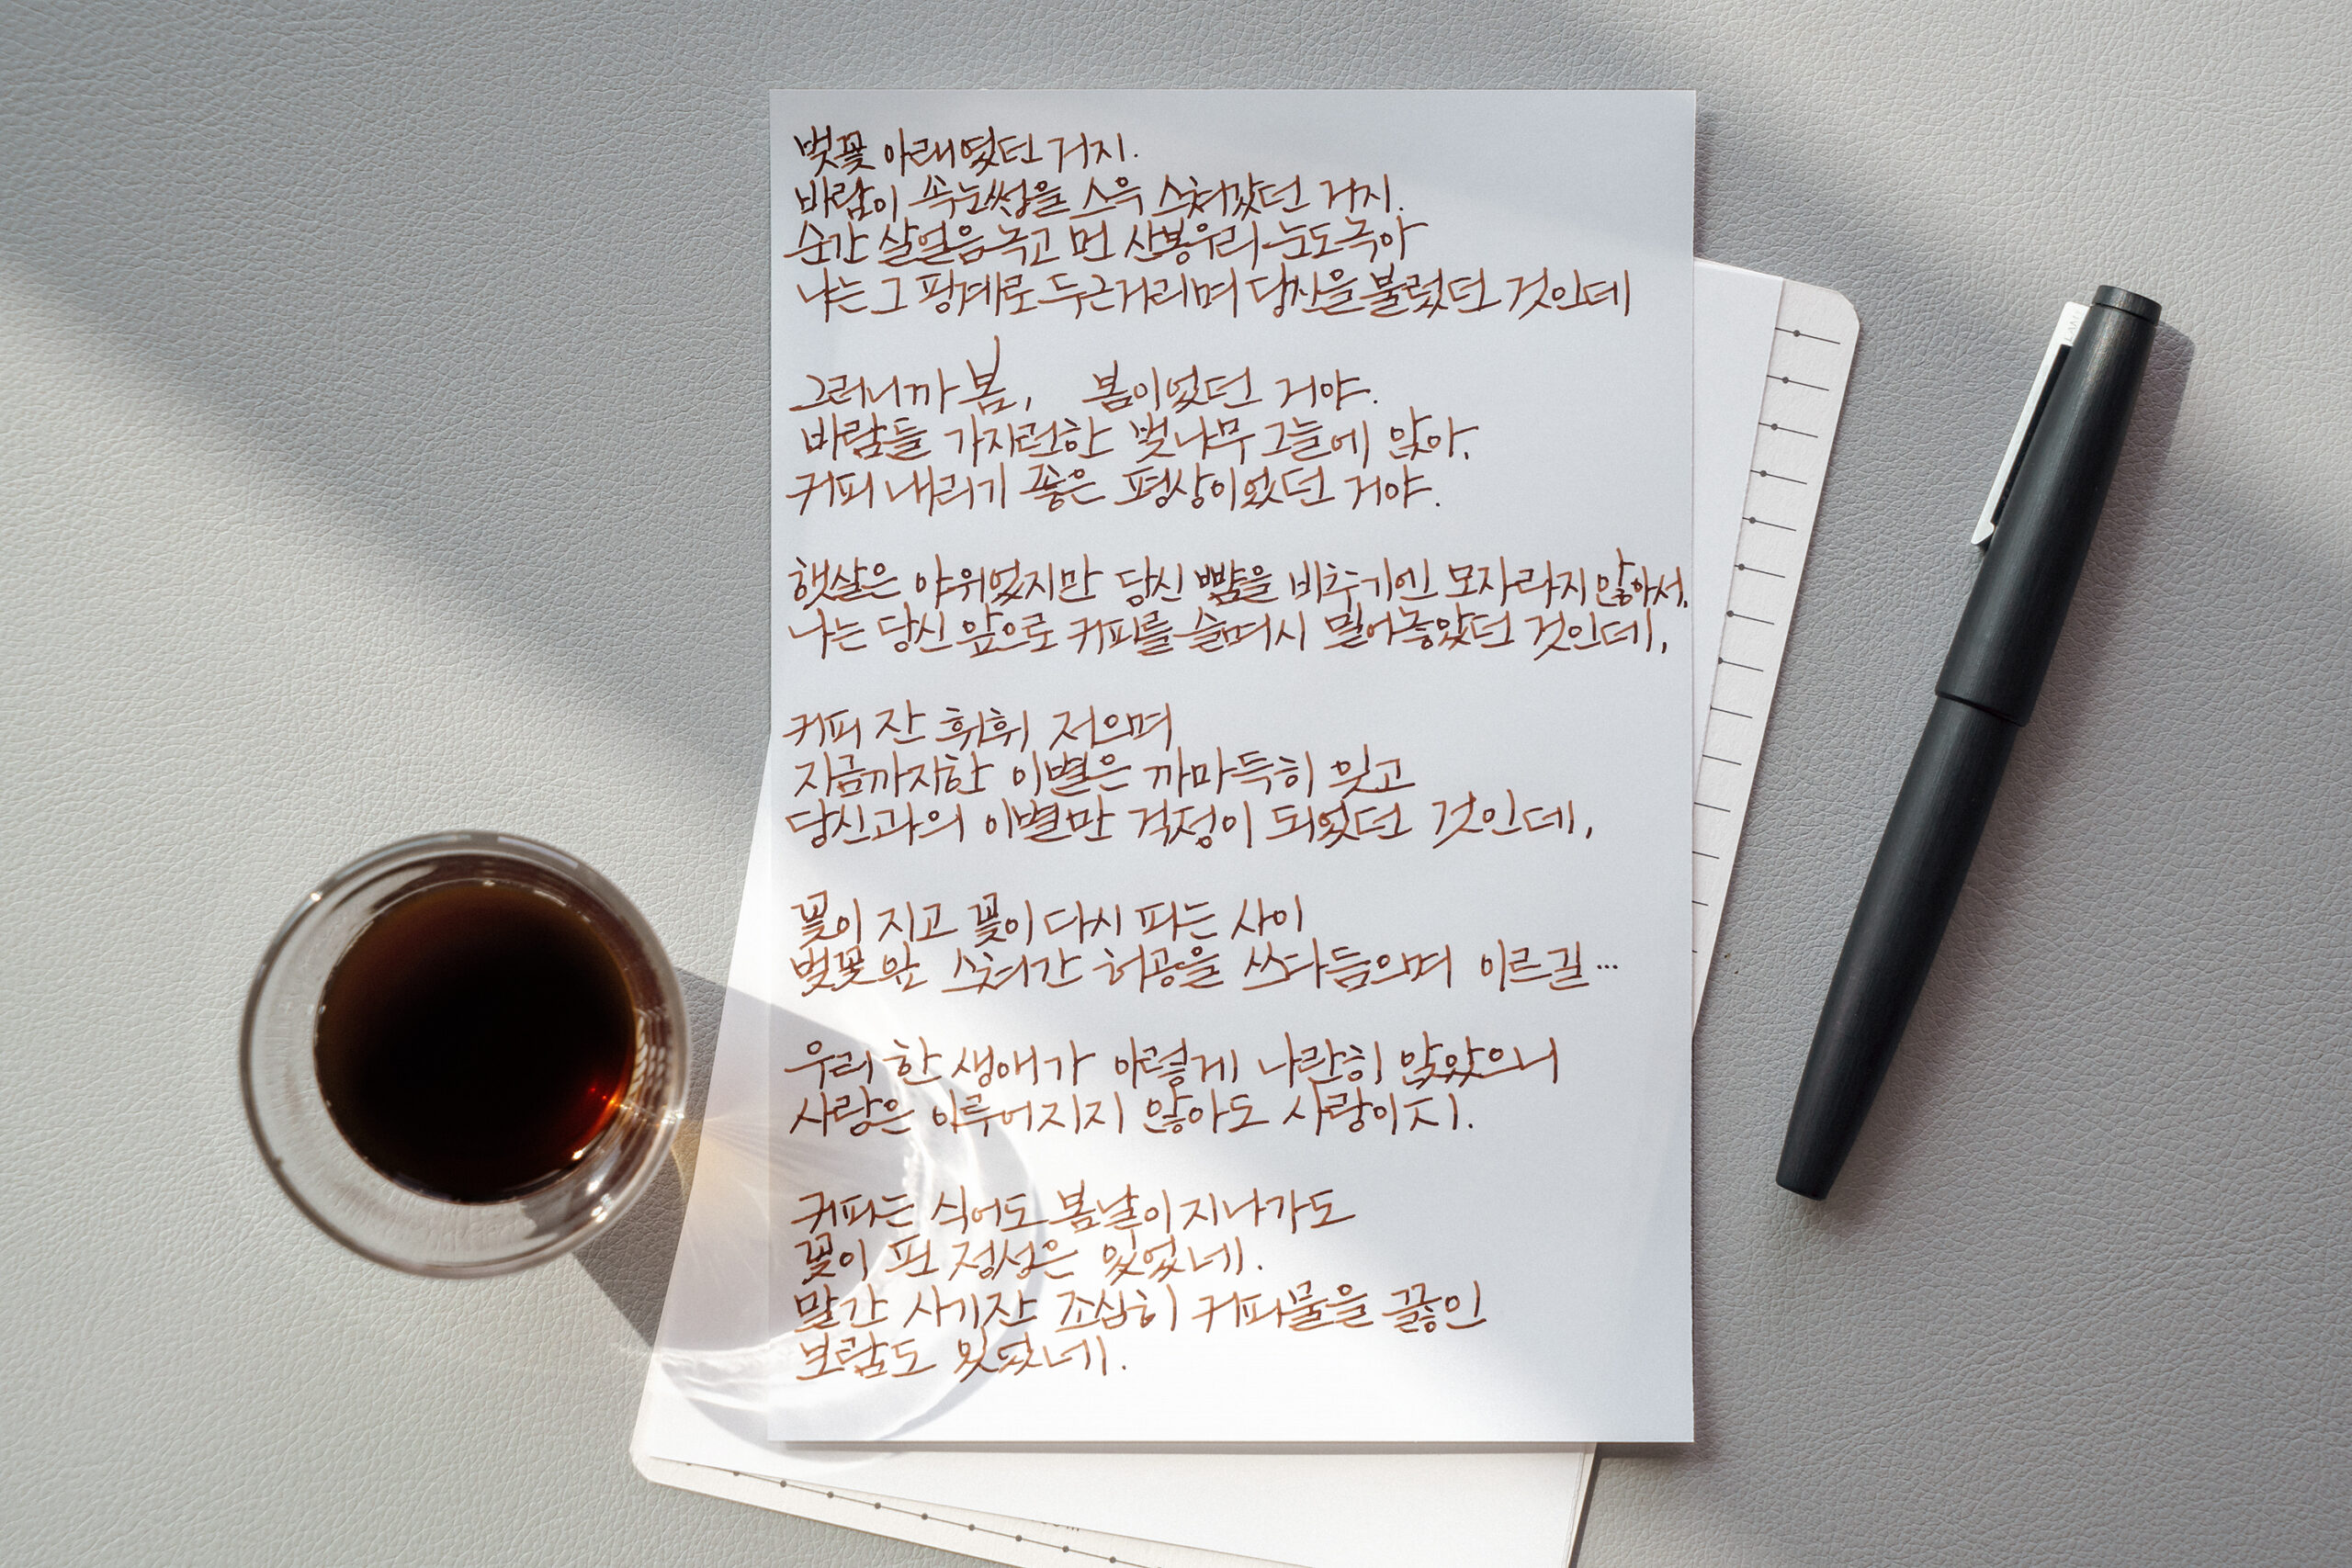 벚꽃 아래였던 거지.
바람이 속눈썹을 스윽 스쳐갔던 거지.
순간 살얼음 녹고 먼 산봉우리 눈도 녹아
나는 그 핑계로 두근거리며 당신을 불렀던 것인데
그러니까 봄, 봄이었던 거야.
바람들 가지런한 벚나무 그늘에 앉아,
커피 내리기 좋은 평상이었던 거야.
햇살은 야위었지만 당신 뺨을 비추기엔 모자라지 않아서,
나는 당신 앞으로 커피를 슬며시 밀어놓았던 것인데,
커피 잔 휘휘 저으며
지금까지한 이별은 까마득히 잊고
당신과의 이별만 걱정이 되었던 것인데,
꽃이 지고 꽃이 다시 피는 사이
벚꽃 앞 스쳐간 허공을 쓰다듬으며 이르길...
우리 한 생애가 이렇게 나란히 앉았으니
사랑은 이루어지지 않아도 사랑이지.
커피는 식어도 봄날이 지나가도
꽃이 핀 정성은 있었네.
말간 사기잔 조심히 커피물을 끓인
보람도 있었네.
LAMY